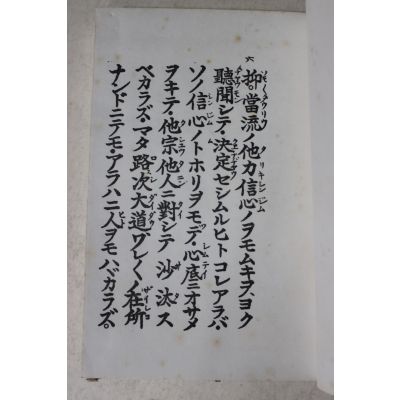 六
抑當流ノ他力信心ノヲモムキヲヨク
聽聞シテ決定セシムルヒトコレアラバ
ソノ信心ノトホリヲモテ心底ニオサメ
ヲキテ他宗他人ニ對シテ沙汰ス
ベカラズマタ路次大道ワレ〳〵ノ在所
ナンドニテモアラハニ人ヲモハヾカラズ